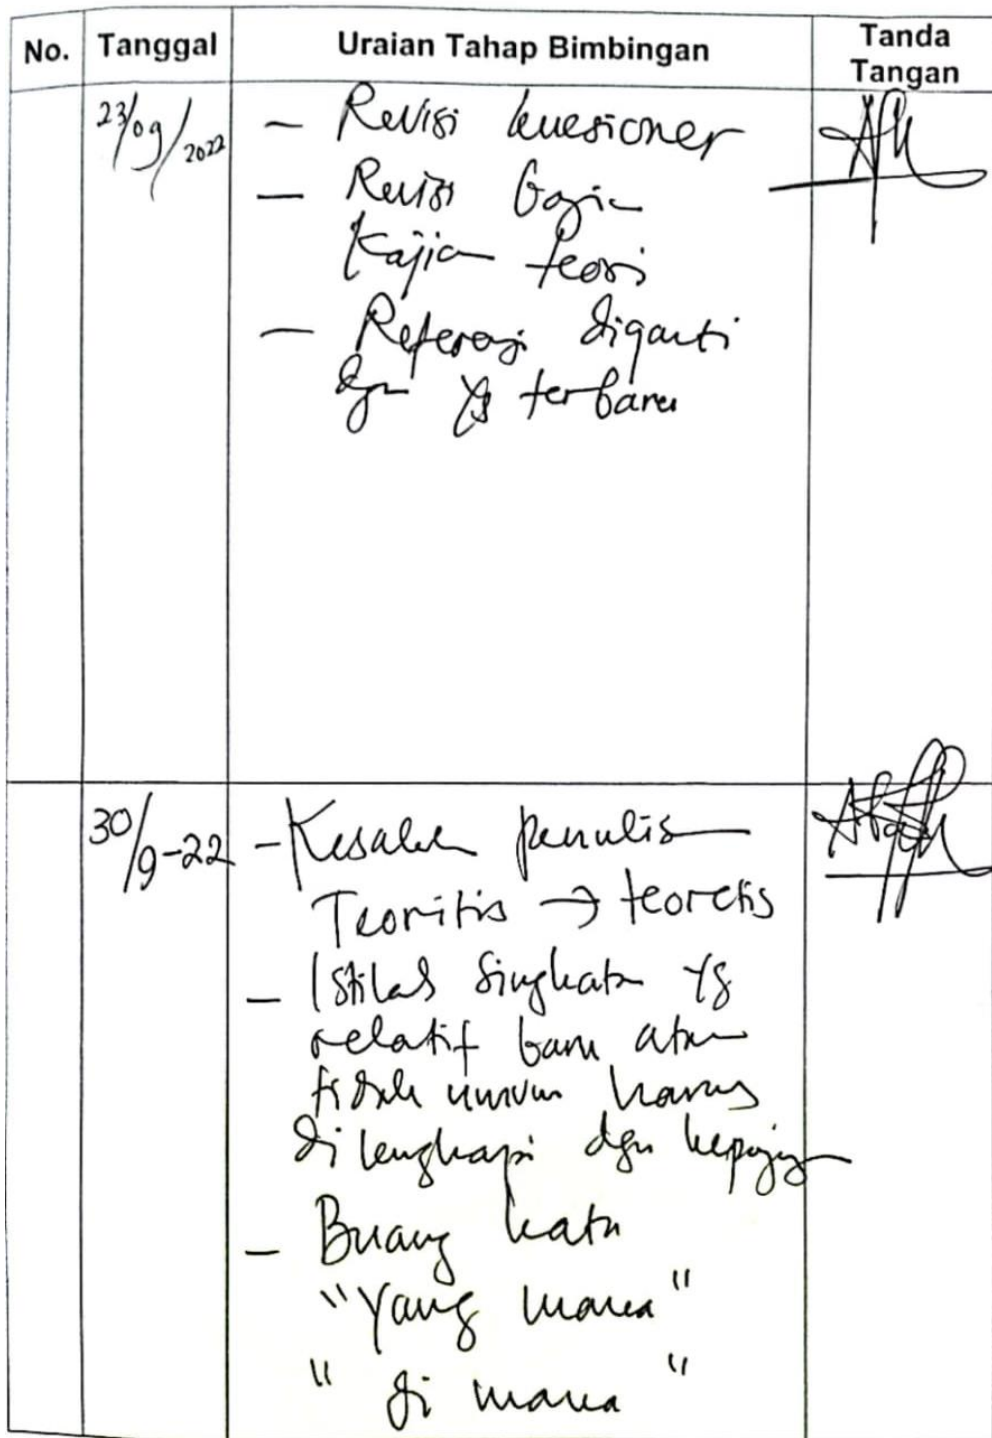 No. Tanggal Uraian Tahap Bimbingan Tanda Tangan
23/09/2022
- Revisi kuesioner
- Revisi bagian
Kajian teori
- Referensi diganti
dgn yg terbaru
30/9-22
- Kesalahan penulisan
Teoritis → teoretis
- Istilah singkatan yg
relatif baru atau
tidak umum harus
dilengkapi dgn kepanjangan
- Buang kata
"Yang mana"
"di mana"